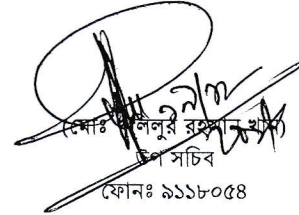 (মোঃ রহমান খান)
উপ সচিব
ফোনঃ ৯১১৮০৫৪